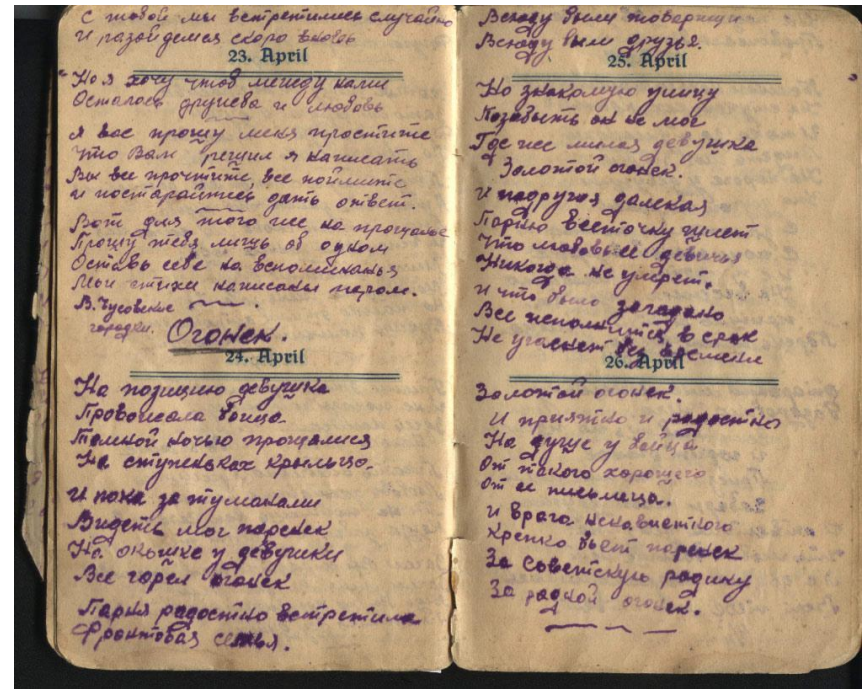 С тобой мы встретились случайно
И разойдемся скоро вновь
23. April
"Но я хочу чтоб между нами
Осталось дружева и любовь
Я вас прошу меня простите
Что Вам решил я написать
Вы все прочтите, все поймите
И постарайтесь дать ответ.
Вот для того же на прощанье
Прошу тебя лишь об одном
Оставь себе на вспоминанья
Мои стихи написаны пером.
В. Чусовские
городки.
Огонек.
24. April
На позицию девушка
Провожала бойца
Темной ночью прощалися
На ступеньках крыльца.
И пока за туманами
Видеть мог паренек
На окошке у девушки
Все горел огонек
Парня радостно встретила
Фронтовая семья.
Всюду были товарищи
Всюду были друзья.
25. April
Но знакомую улицу
Позабыть он не мог
Где же милая девушка
Золотой огонек.
И подруга далекая
Парню весточку шлет
Что любовь ее девичья
Никогда не умрет.
И что было загадано
Все исполнится в срок
Не угаснет без времени
26. April
Золотой огонек.
И приятно и радостно
На душе у бойца
От такого хорошего
От ее письмеца.
И врага ненавистного
Крепко бьет паренек
За советскую родину
За родной огонек.